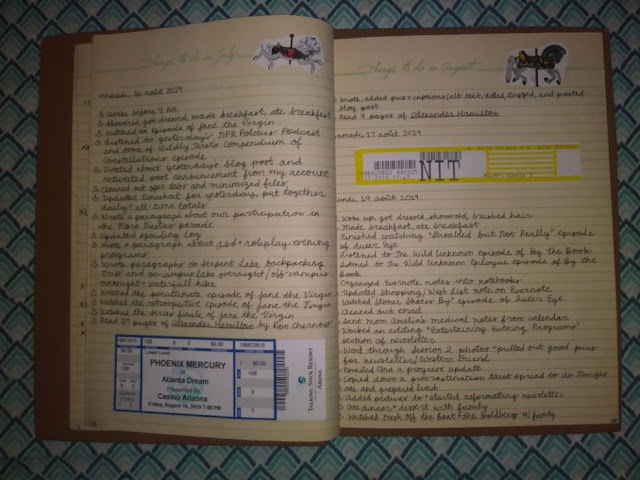 Things to do in July
vendredi, 16 août 2019
Awake before 9 AM
Showered, got dressed, made breakfast, ate breakfast
Watched an episode of Jane the Virgin
Listened to yesterday's NPR Politics Podcast
and some of Wildly Tarot's Compendium of
Constellations episode
Tweeted about yesterday's blog post and
retweeted post announcement from my account
Cleaned out open tabs and minimized files
Updated timesheet for yesterday, put together
daily + all-time totals
Updated spending log
Wrote a paragraph about our participation in
the parade
Wrote a paragraph about + roleplay evening
programs
Wrote paragraphs on Serpent Lake backpacking
trip and on-campus lake overnight/off-campus
overnight + waterfall hike
Watched the penultimate episode of Jane the Virgin
Watched the retrospective episode of Jane the Virgin
Watched the series finale of Jane the Virgin
Read 27 pages of Alexander Hamilton by Ron Chernow
108 6 5 $0.00 19MC0816
$0.00
Lower Level
PHOENIX MERCURY
vs
Atlanta Dream
Presented By
Casino Arizona
Friday, August 16, 2019 7:00 PM
$0.00
108
6
5
TALKING STICK RESORT
ARENA
Things to do in August
Wrote, added pics + captions/alt text, titled, tagged, and posted
blog post
Read 9 pages of Alexander Hamilton
samedi, 17 août 2019
NIT
lundi, 19 août 2019
Woke up, got dressed, showered, brushed hair
Made breakfast, ate breakfast
Finished watching "Disabled But Not Really" episode
of Queer Eye
Listened to The Wild Unknown episode of By the Book
Listened to The Wild Unknown Epilogue episode of By the
Book
Organized Evernote notes into notebooks
Updated Shopping/Wish List note on Evernote
Watched episode of Queer Eye
Cleaned out email
Sent mom Amelia's medical notes from calendar
Worked on editing "Entertaining Evening Programs"
section of newsletter
Went through session 2 photos - pulled out good pics
for newsletter/
Emailed a progress update
Copied down a procrastination tarot spread to do tonight
Ate and prepared lunch
Added pictures to + started reformatting newsletter
Ate dinner + dessert with family
Watched Fresh Off the Boat + The Goldbergs w/ family